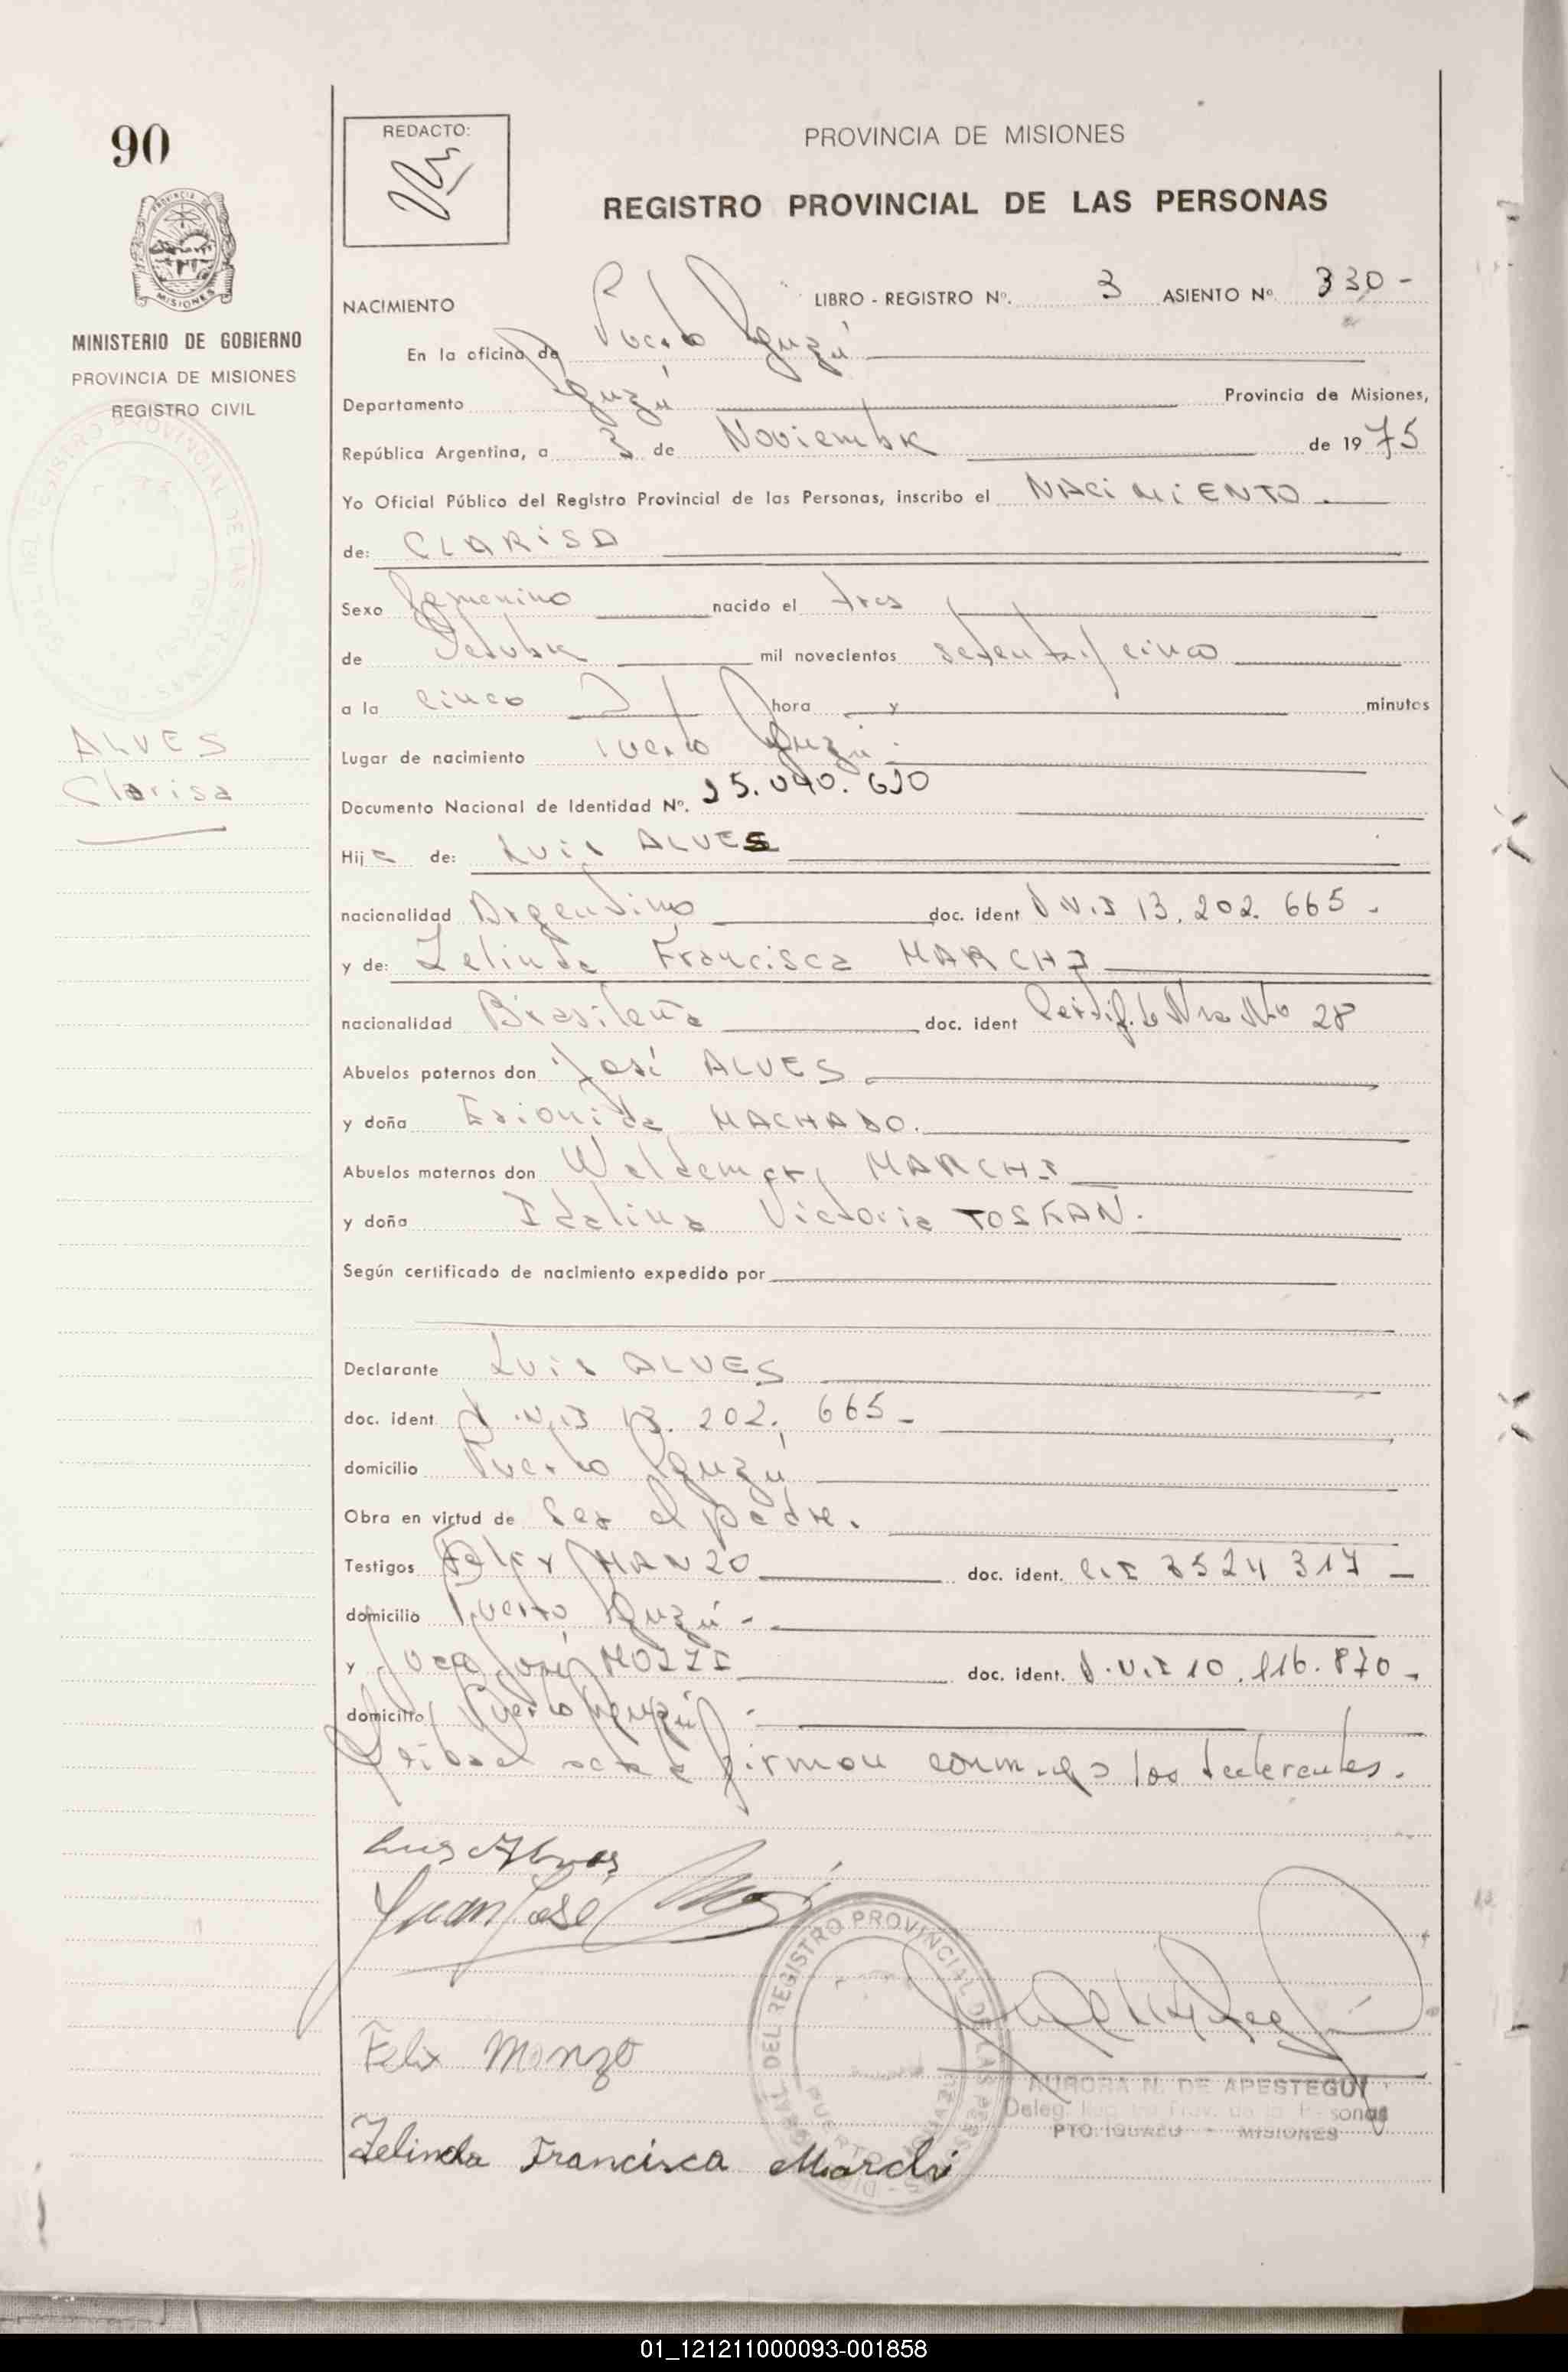 90
REDACTO:
PROVINCIA DE MISIONES
REGISTRO PROVINCIAL DE LAS PERSONAS
MISIONES
MINISTERIO DE GOBIERNO
PROVINCIA DE MISIONES
REGISTRO CIVIL
NACIMIENTO LIBRO - REGISTRO Nº. 3 ASIENTO Nº 330 -
En la oficina de Puerto Iguazú
Departamento Iguazú Provincia de Misiones,
República Argentina, a 3 de Noviembre de 1975
Yo Oficial Público del Registro Provincial de las Personas, inscribo el NACIMIENTO.
de: CLARISA
Sexo femenino nacido el tres
de Octubre mil novecientos setenta y cinco
a la cinco hora y minutos
ALVES
Clarisa
Lugar de nacimiento Puerto Iguazú.
Documento Nacional de Identidad Nº. 25.040.620
Hija de: Luis ALVES
nacionalidad Argentino doc. ident D.N.I 13.202.665-
y de: Zelinda Francisca MARCHI
nacionalidad Brasileña doc. ident Certif. de Nac. No 28
Abuelos paternos don José ALVES
y doña MACHADO.
Abuelos maternos don Waldemar MARCHI
y doña Idalina Victoria TOSKAN.
Según certificado de nacimiento expedido por
Declarante Luis ALVES
doc. ident. D.N.I 13.202.665-
domicilio Puerto Iguazú
Obra en virtud de ser el padre.
Testigos Felix MANZO doc. ident. C.I 3524317-
domicilio Puerto Iguazú-
y Juan José doc. ident. D.N.I 10.116.870-
domicilio Puerto Iguazú
Leida el acta firman conmigo los declarantes.
Luis Alves
Juan José
DEL REGISTRO PROVINCIAL DE LAS PERSONAS
PUERTO IGUAZU
Felix Monzo
AURORA N. DE APESTEGUI
PTO. IGUAZU - MISIONES
Zelinda Francisca Marchi
01_121211000093-001858